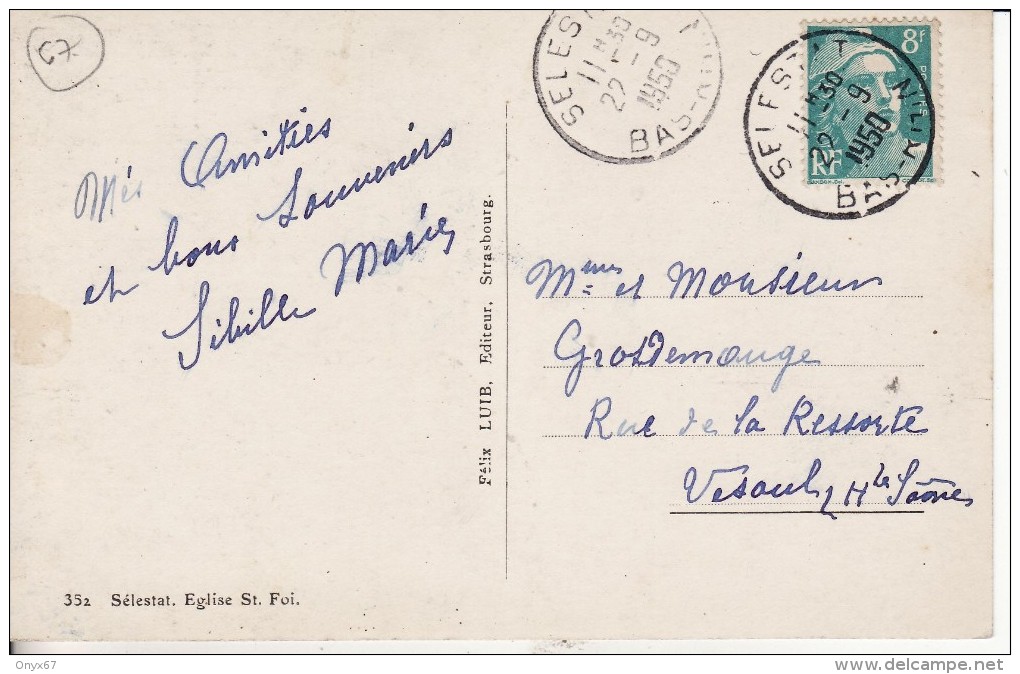 67
SELESTAT
11H30
22-9
1950
BAS-RHIN
SELESTAT
11H30
22-9
1950
BAS-RHIN
8F
RF
Mes Amitiés
et bons Souvenirs
Sibille Marie
Mme et Monsieur
Grosdemouge
Rue de la Ressorte
Vesoul Hte Saône
Félix LUIB, Editeur, Strasbourg.
352 Sélestat. Eglise St. Foi.
Onyx67
delcampe.net